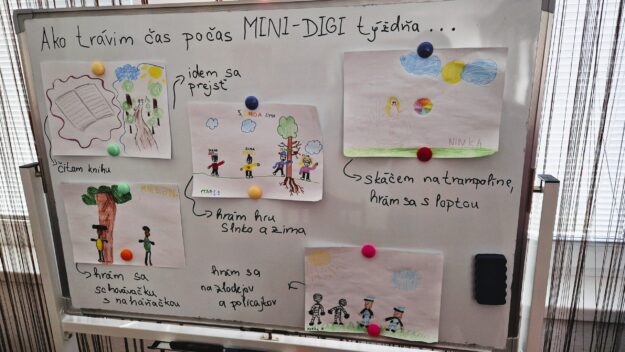 Ako trávim čas počas MINI-DIGI týždňa ...
idem sa
prejsť
čítam knihu
hrám hru
Slnko a zima
skáčem na trampolíne,
hrám sa s loptou
NINKA
hrám sa
schovávačku
s naháňačkou
hrám sa
na zlodejov
a policajtov